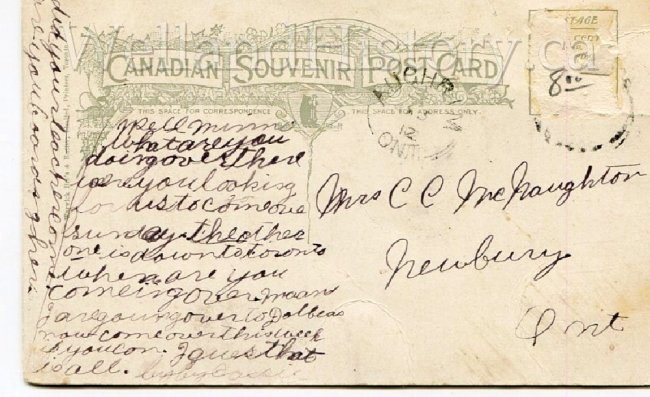 WellandHistory.ca
CANADIAN SOUVENIR POST CARD
THIS SPACE FOR CORRESPONDENCE
THIS SPACE FOR ADDRESS ONLY.
AUGHRI
12
ONT
STAGE
8
Well Minn
What are you
doing over there
are you looking
for us to come ove
sunday the other
one is down to toronto
when are you
comeing over. mam
I are going over to
now come over this week
if you can. I gues that
is all. by by
Mrs C C McNaughton
Newbury
Ont